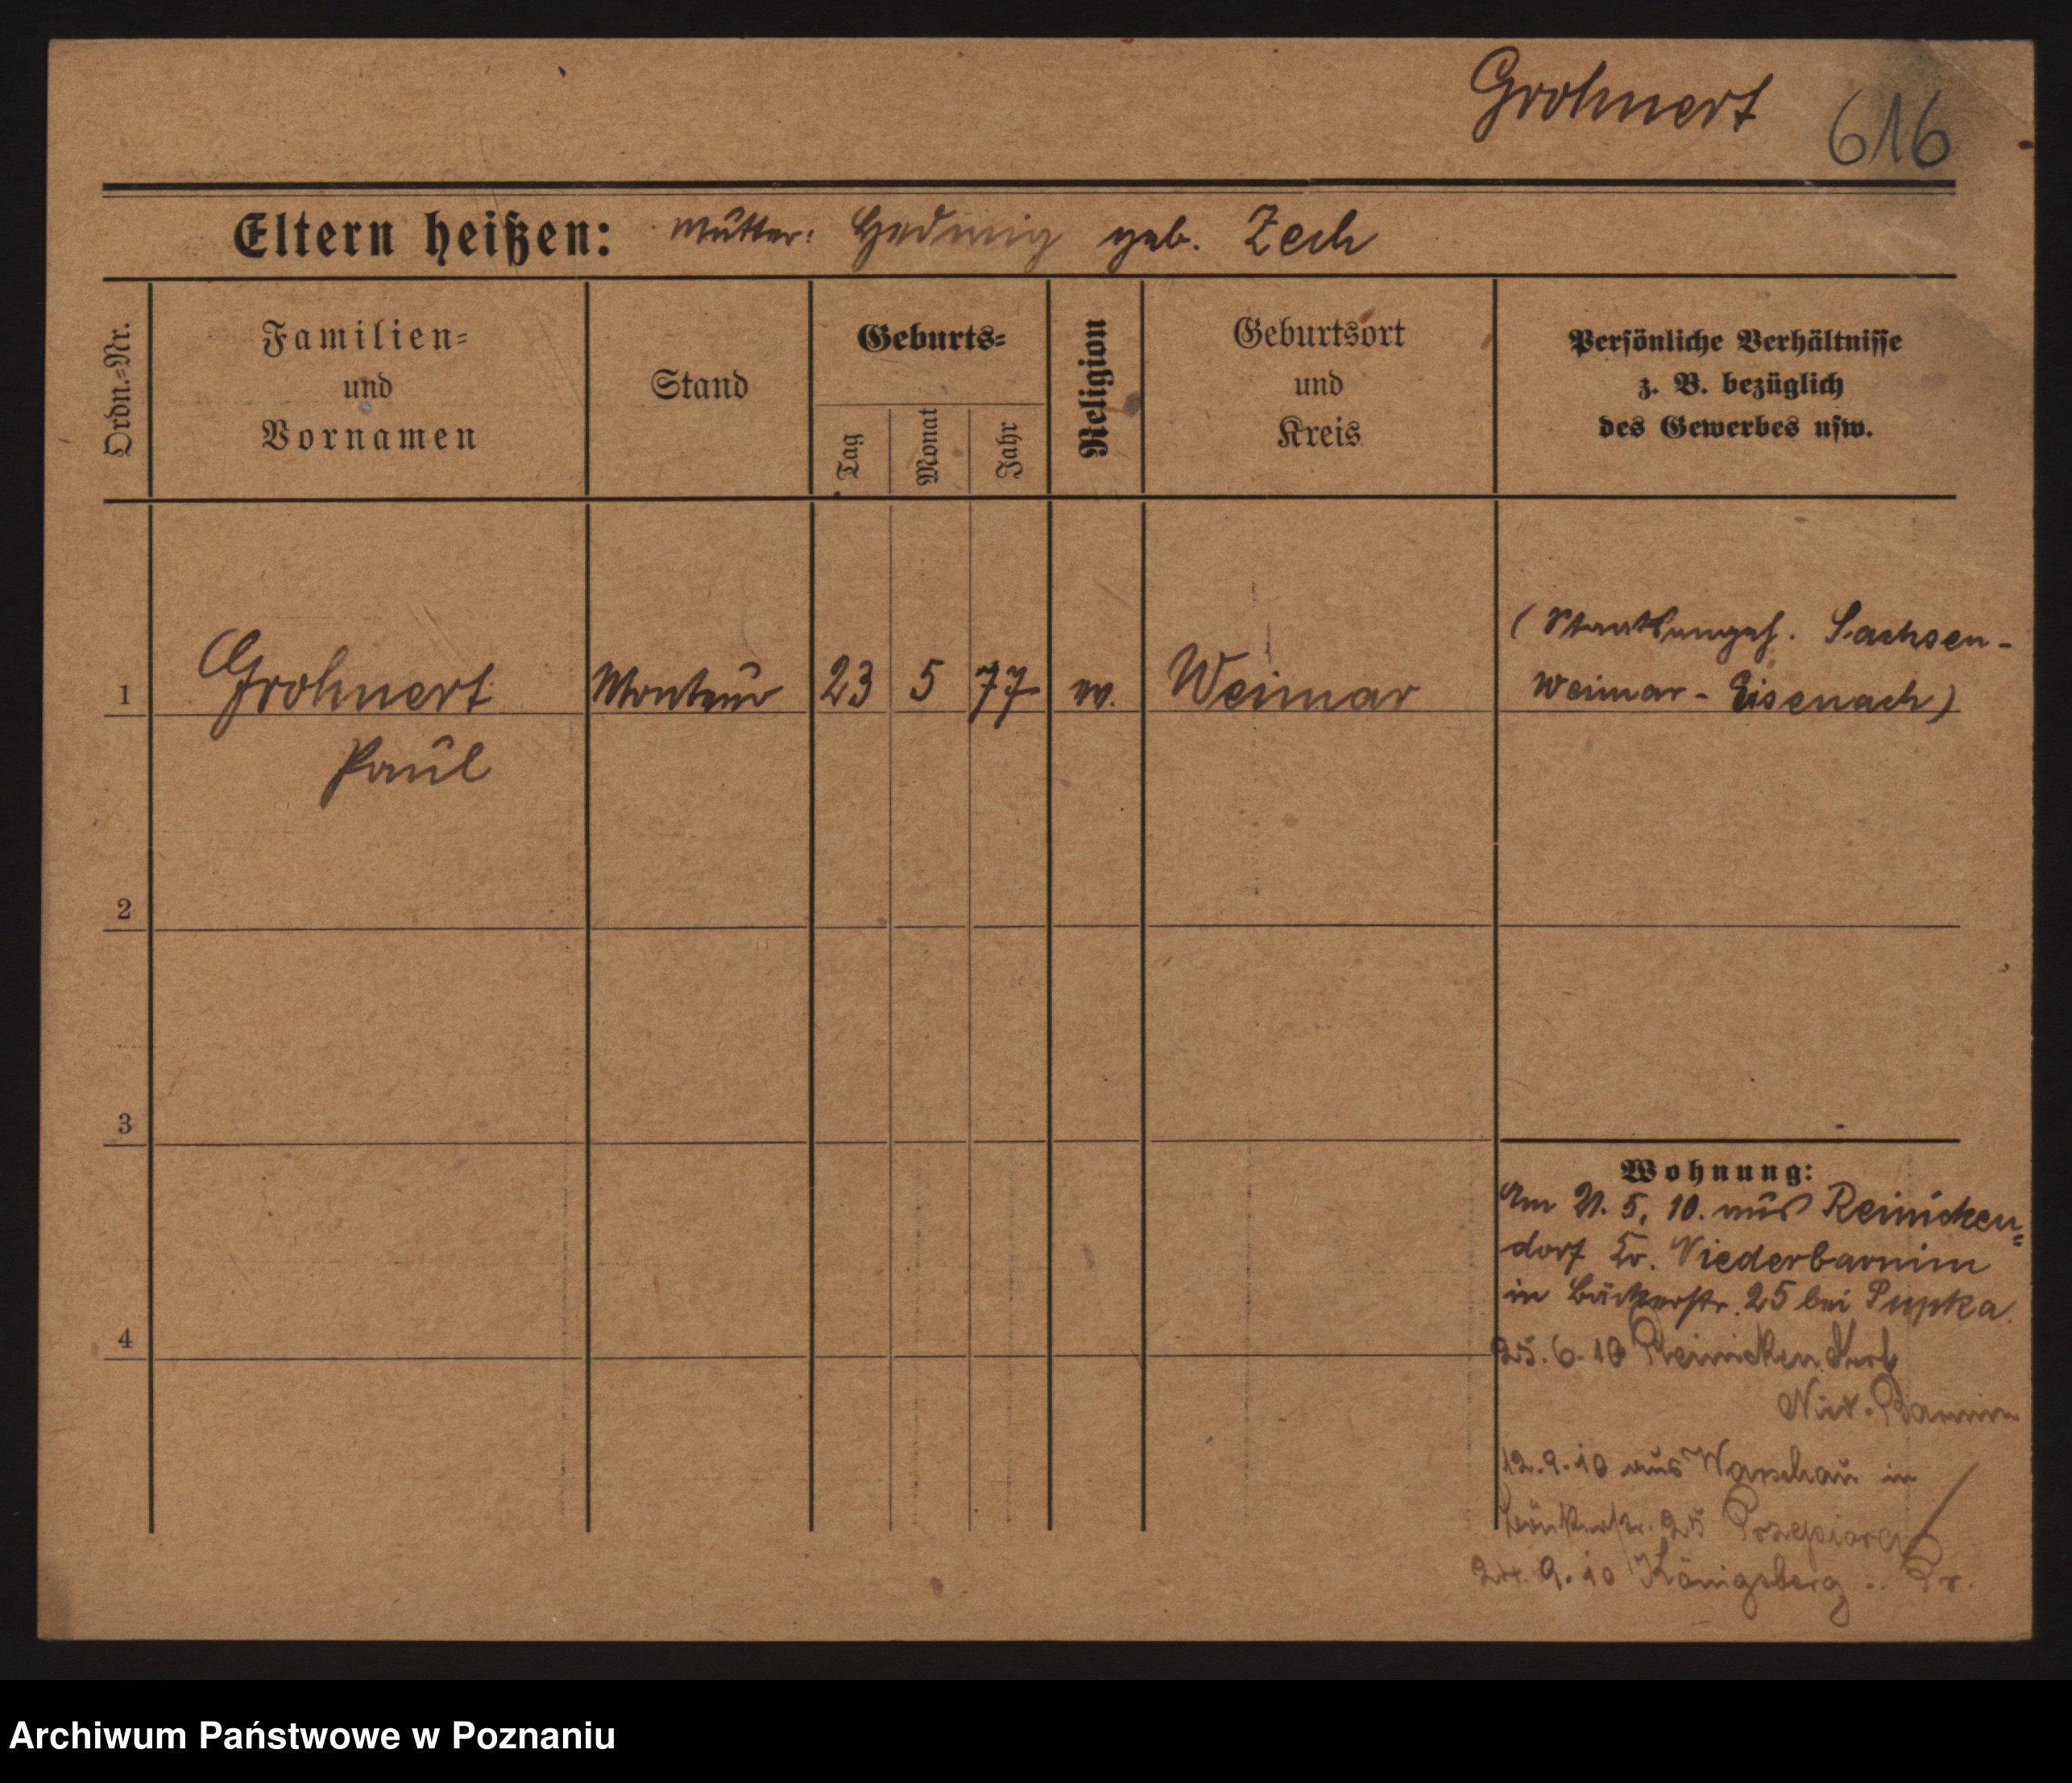 Grohnert 616
Eltern heißen: Mutter: Hedwig geb. Zech
Ordn.=Nr.
Familien=
und
Vornamen
Stand
Geburts=
Tag
Monat
Jahr
Religion
Geburtsort
und
Kreis
Persönliche Verhältnisse
z. B. bezüglich
des Gewerbes usw.
(Staatsangeh. Sachsen-
1 Grohnert Monteur 23 5 77 ev. Weimar Weimar - Eisenach)
Paul
2
3
Wohnung:
Am 21. 5. 10. aus Reinicken=
dorf Kr. Niederbarnim
in Bäckerstr. 25 bei Pupka.
4
25. 6. 10 Reinickendorf
Nied. Barnim
12. 9. 10 aus Warschau in
Bäckerstr. 25 Przepiora
24. 9. 10 Königsberg Pr.
Archiwum Państwowe w Poznaniu